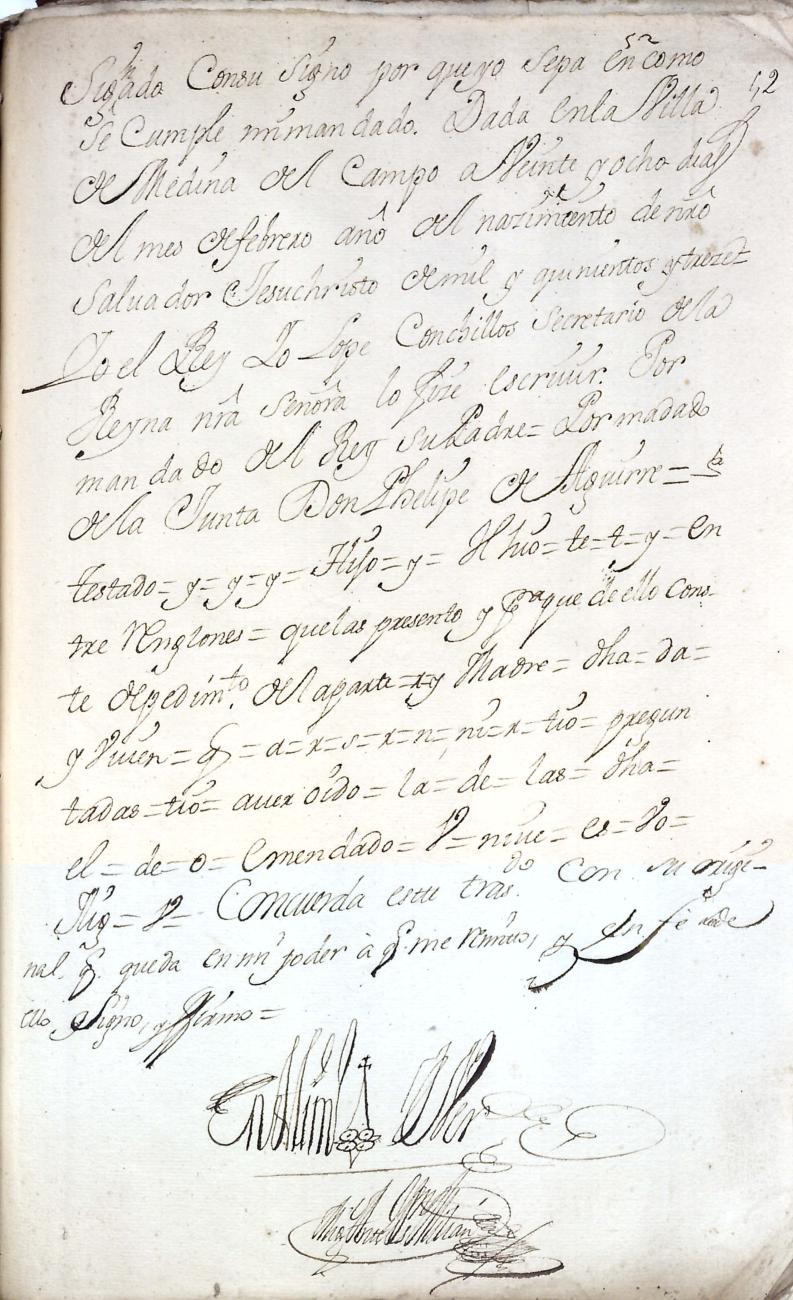 Signado Consu Signo por que yo Sepa en como
52
Se Cumple mi mandado. Dada en la Villa
de Medina del Campo a Veinte y ocho dias
del mes de febrero año del nazimiento de nrô
Saluador Jesuchristo de mil y quinientos y treze=
Yo el Rey Yo Lope Conchillos Secretario de la
Reyna nrâ Señorâ lo fize escriuir. Por
mandado del Rey su Padre= Por madado
de la Junta Don Phelipe de Aguirre=
testado= y= y= y= Hijo= y= Hizo= te= t= y= en
tre Renglones= que las presento y pª que de ello Cons-
te de pedimto. de la parte= y Madre= dha= da=
y Viuen= q= a= r= s= r= n= ni= r= tio= pregun
tadas= tio= auer oido= la= de= las= dha=
el= de= o= emendado= V= niue= es= Vo=
V= Concuerda este trasdo Con su origi-
nal q. queda en mi poder à q. me Remito, y en fe de
ello Signo, y ffirmo=
En testim.